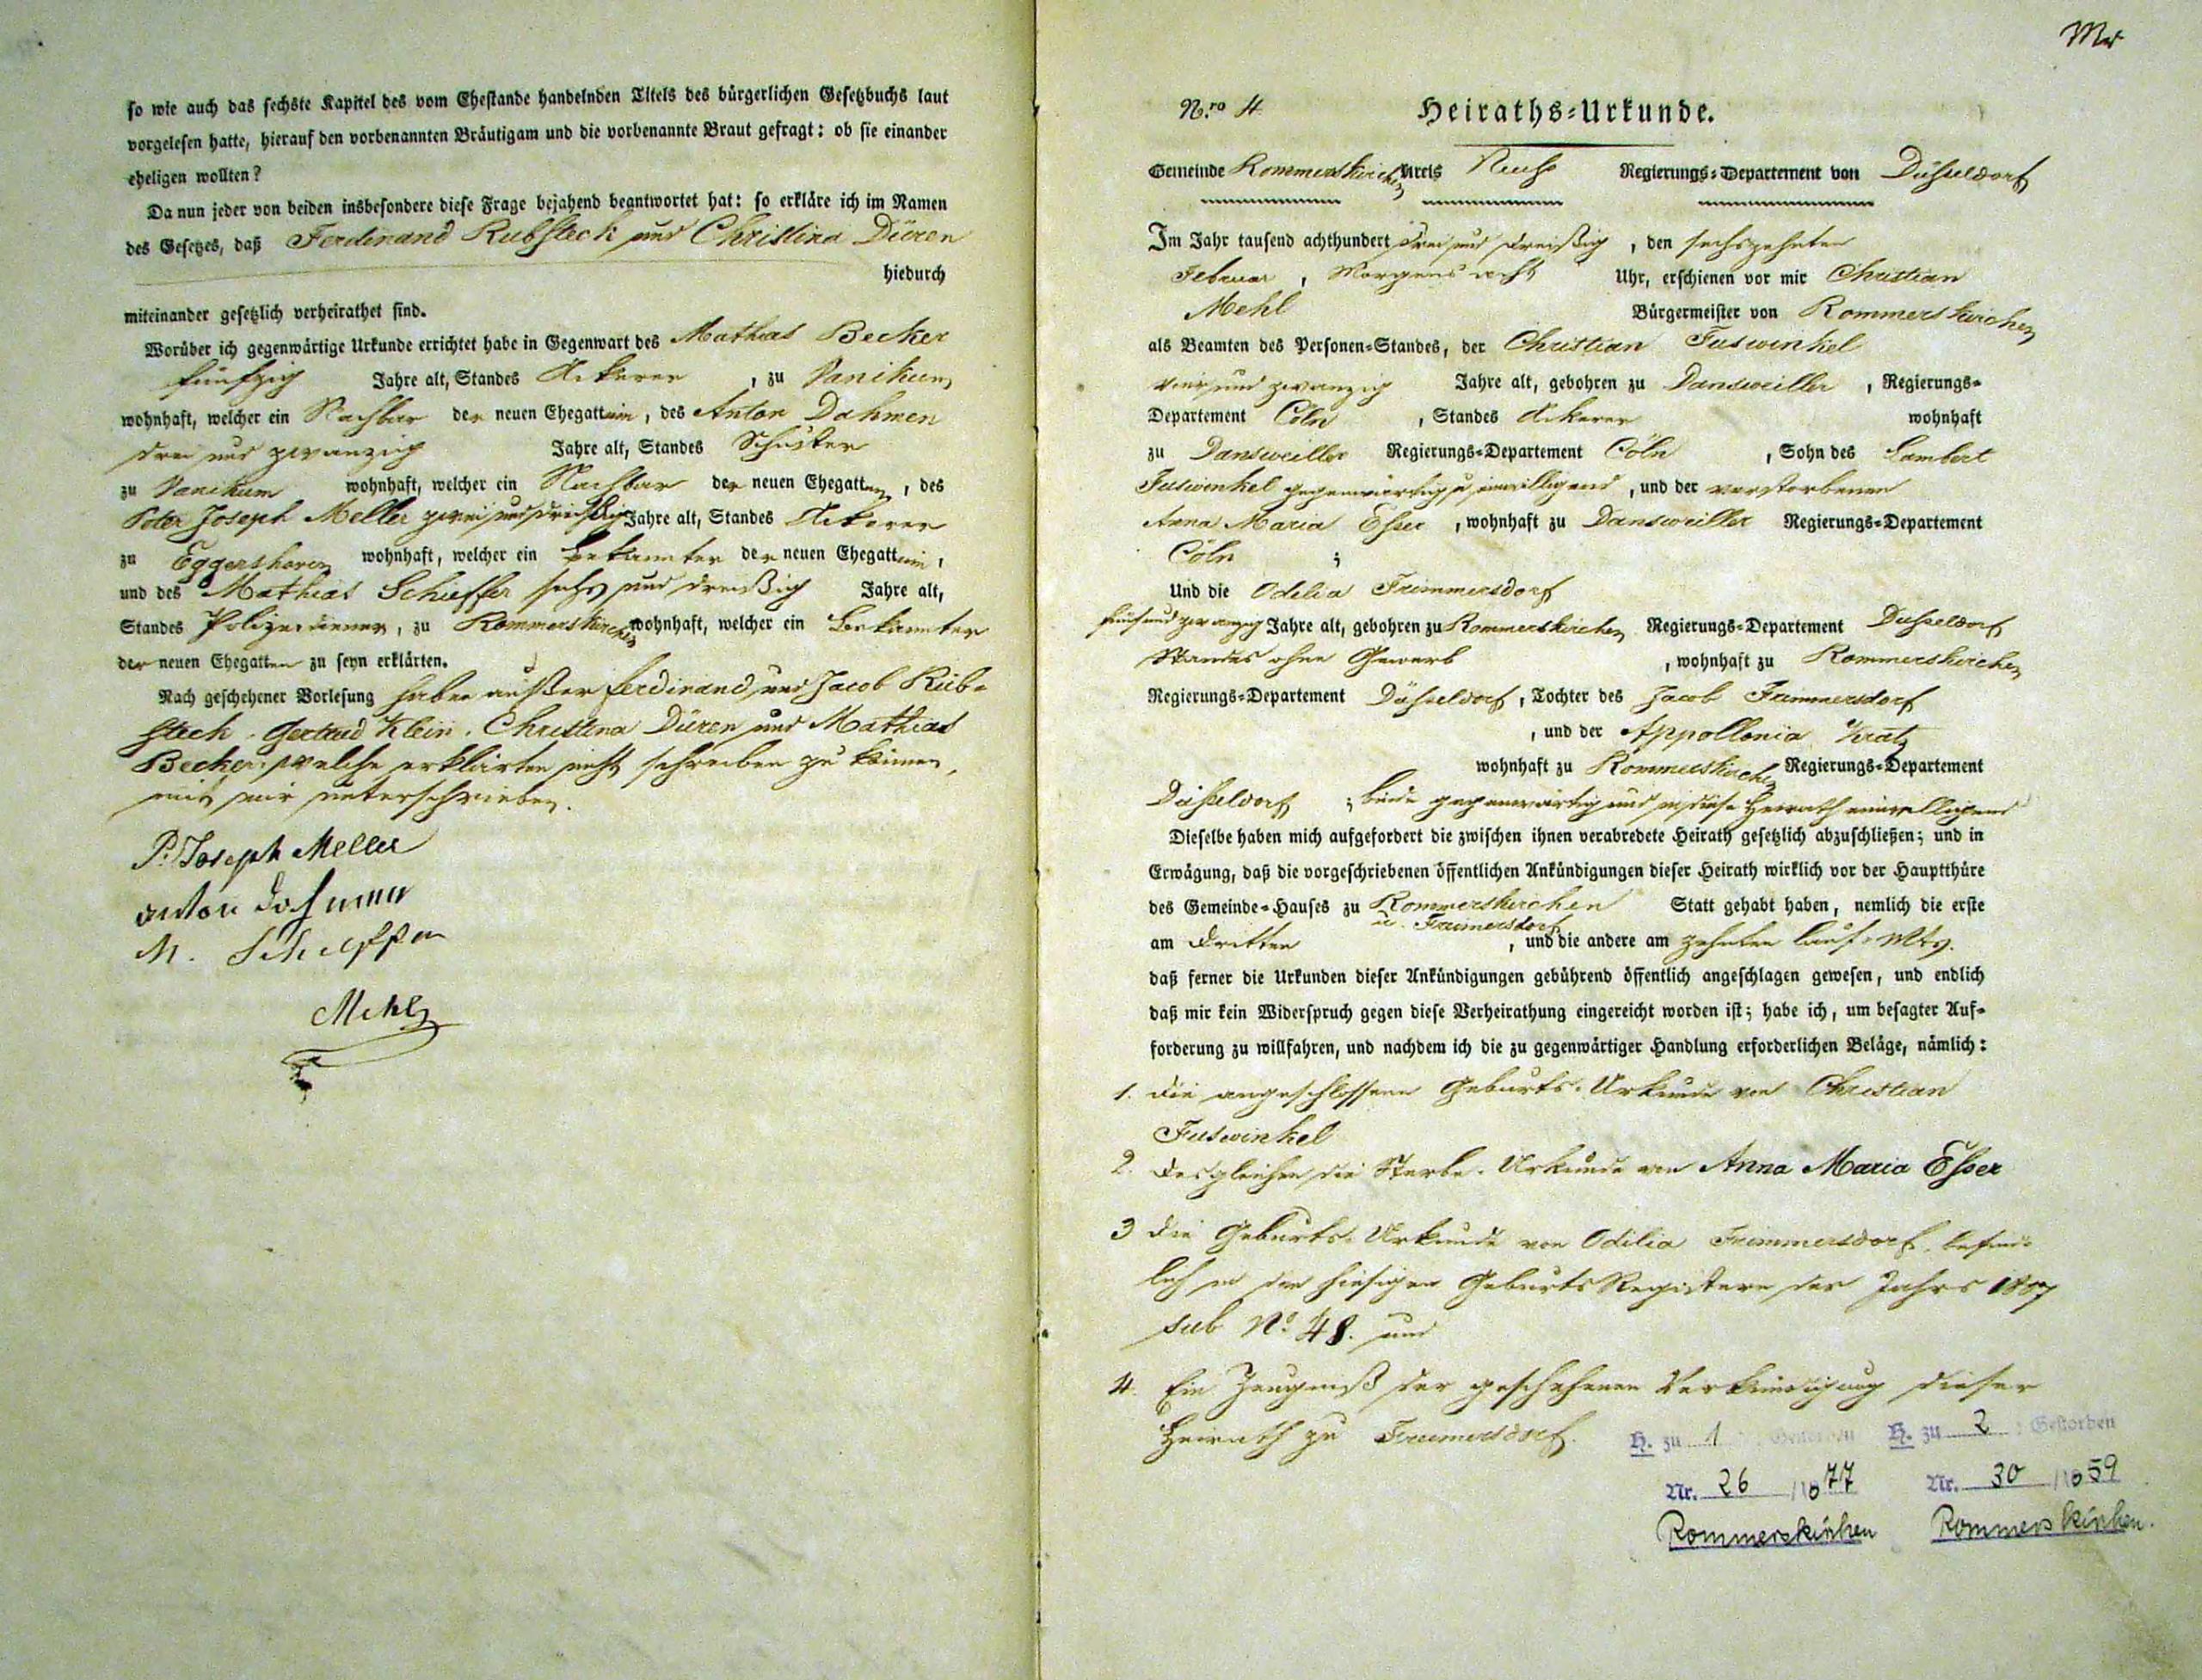 so wie auch das sechste Kapitel des vom Ehestande handelnden Titels des bürgerlichen Gesetzbuchs laut
vorgelesen hatte, hierauf den vorbenannten Bräutigam und die vorbenannte Braut gefragt: ob sie einander
eheligen wollten?
Da nun jeder von beiden insbesondere diese Frage bejahend beantwortet hat: so erkläre ich im Namen
des Gesetzes, daß Ferdinand Rübsteck und Christina Düren
hiedurch
miteinander gesetzlich verheirathet sind.
Worüber ich gegenwärtige Urkunde errichtet habe in Gegenwart des Mathias Becker
fünfzig Jahre alt, Standes Ackerer, zu Vanikum
wohnhaft, welcher ein Nachbar der neuen Ehegattin, des Anton Dahmen
drei und zwanzig Jahre alt, Standes Schuster
zu Vanikum wohnhaft, welcher ein Nachbar der neuen Ehegatten, des
Peter Joseph Meller zwei und dreißig Jahre alt, Standes Ackerer
zu Eggershoven wohnhaft, welcher ein Bekannter der neuen Ehegattin,
und des Mathias Scheffer sechs und dreißig Jahre alt,
Standes Polizeidiener, zu Rommerskirchen wohnhaft, welcher ein Bekannter
der neuen Ehegatten zu seyn erklärten.
Nach geschehener Vorlesung haben außer Ferdinand und Jacob Rüb-
steck, Gertrud Klein, Christina Düren und Mathias
Becker, welche erklärten nicht schreiben zu können,
mit mir unterschrieben.
P. Joseph Meller
Anton Dahmen
M. Scheffer
Mehl
Nro 4 Heiraths-Urkunde.
Gemeinde Rommerskirchen Kreis Neuß Regierungs-Departement von Düsseldorf
Im Jahr tausend achthundert drei und dreißig, den sechszehnten
Februar, Morgens acht Uhr, erschienen vor mir Christian
Mehl Bürgermeister von Rommerskirchen
als Beamten des Personen-Standes, der Christian Fuswinkel
vier und zwanzig Jahre alt, gebohren zu Dansweiller, Regierungs-
Departement Cöln, Standes Ackerer wohnhaft
zu Dansweiller Regierungs-Departement Cöln, Sohn des Lambert
Fuswinkel gegenwärtig u. einwilligend, und der verstorbenen
Anna Maria Esser, wohnhaft zu Dansweiller Regierungs-Departement
Cöln;
Und die Odilia Frimmersdorf
fünf und zwanzig Jahre alt, gebohren zu Rommerskirchen Regierungs-Departement Düsseldorf
Standes ohne Gewerb, wohnhaft zu Rommerskirchen
Regierungs-Departement Düsseldorf, Tochter des Jacob Frimmersdorf
, und der Appollonia Kratz
wohnhaft zu Rommerskirchen Regierungs-Departement
Düsseldorf; beide gegenwärtig und in diese Heirath einwilligend
Dieselbe haben mich aufgefordert die zwischen ihnen verabredete Heirath gesetzlich abzuschließen; und in
Erwägung, daß die vorgeschriebenen öffentlichen Ankündigungen dieser Heirath wirklich vor der Hauptthüre
des Gemeinde-Hauses zu Rommerskirchen Statt gehabt haben, nemlich die erste
u. Freimersdorf
am dritten, und die andere am zehnten lauf. Mts.
daß ferner die Urkunden dieser Ankündigungen gebührend öffentlich angeschlagen gewesen, und endlich
daß mir kein Widerspruch gegen diese Verheirathung eingereicht worden ist; habe ich, um besagter Auf-
forderung zu willfahren, und nachdem ich die zu gegenwärtiger Handlung erforderlichen Beläge, nämlich:
1. die angeschlossene Geburts-Urkunde von Christian
Fuswinkel
2. desgleichen die Sterbe-Urkunde von Anna Maria Esser
3 die Geburts-Urkunde von Odilia Frimmersdorf, befind-
lich in den hiesigen Geburts Registern des Jahrs 1807
sub No. 48. und
4. Ein Zeugniß der geschehenen Verkündigung dieser
Heirath zu Freimersdorf.
H. zu 1 Gestorben H. zu 2 Gestorben
Nr. 26 /1877 Nr. 30 /1859
Rommerskirchen Rommerskirchen.